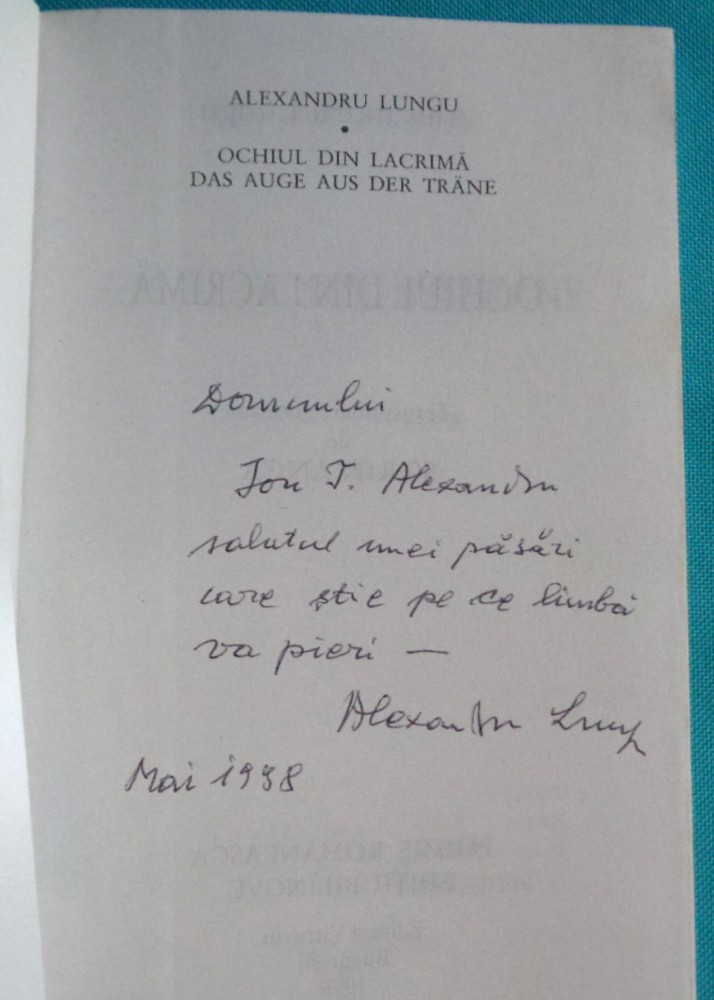 ALEXANDRU LUNGU
•
OCHIUL DIN LACRIMĂ
DAS AUGE AUS DER TRÄNE
Domnului
Ion T. Alexandru
salutul unei păsări
care știe pe ce limbă
va pieri —
Alexandru Lungu
Mai 1998
OCHIUL DIN LACRIMĂ